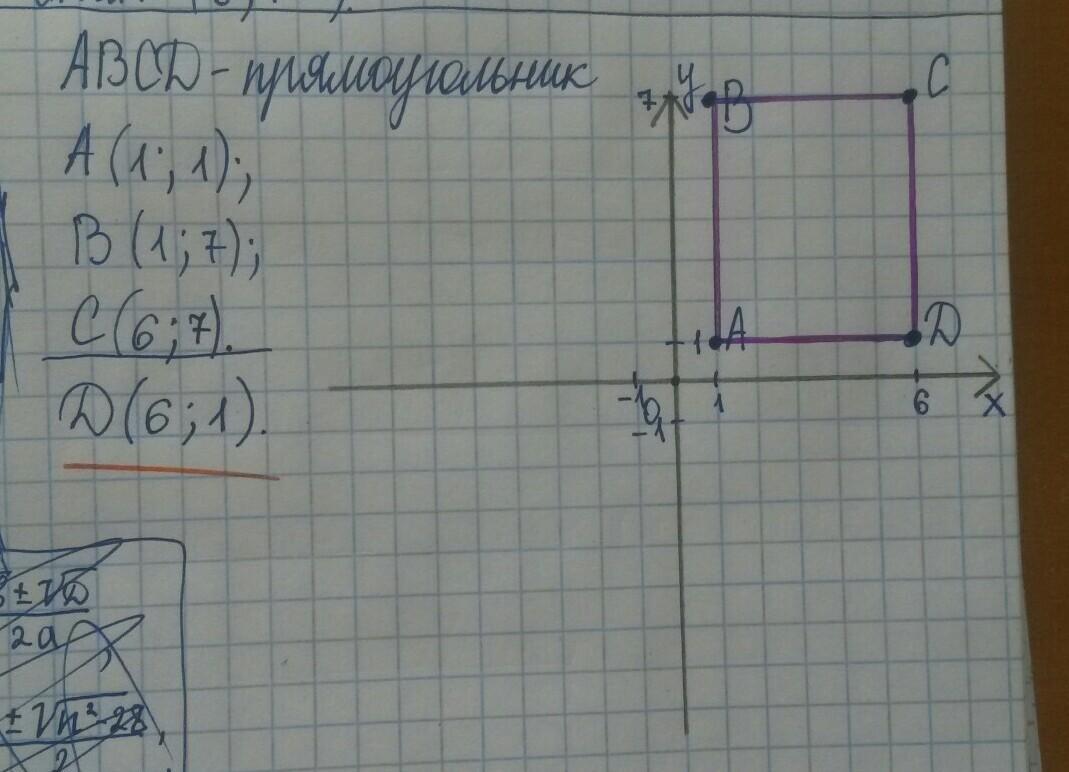 ABCD - прямоугольник
A (1; 1);
B (1; 7);
C (6; 7).
D (6; 1).
7 y B C
1 A D
-1 0 1 6 x
-1
± √D
2a
± √n² - 28
2